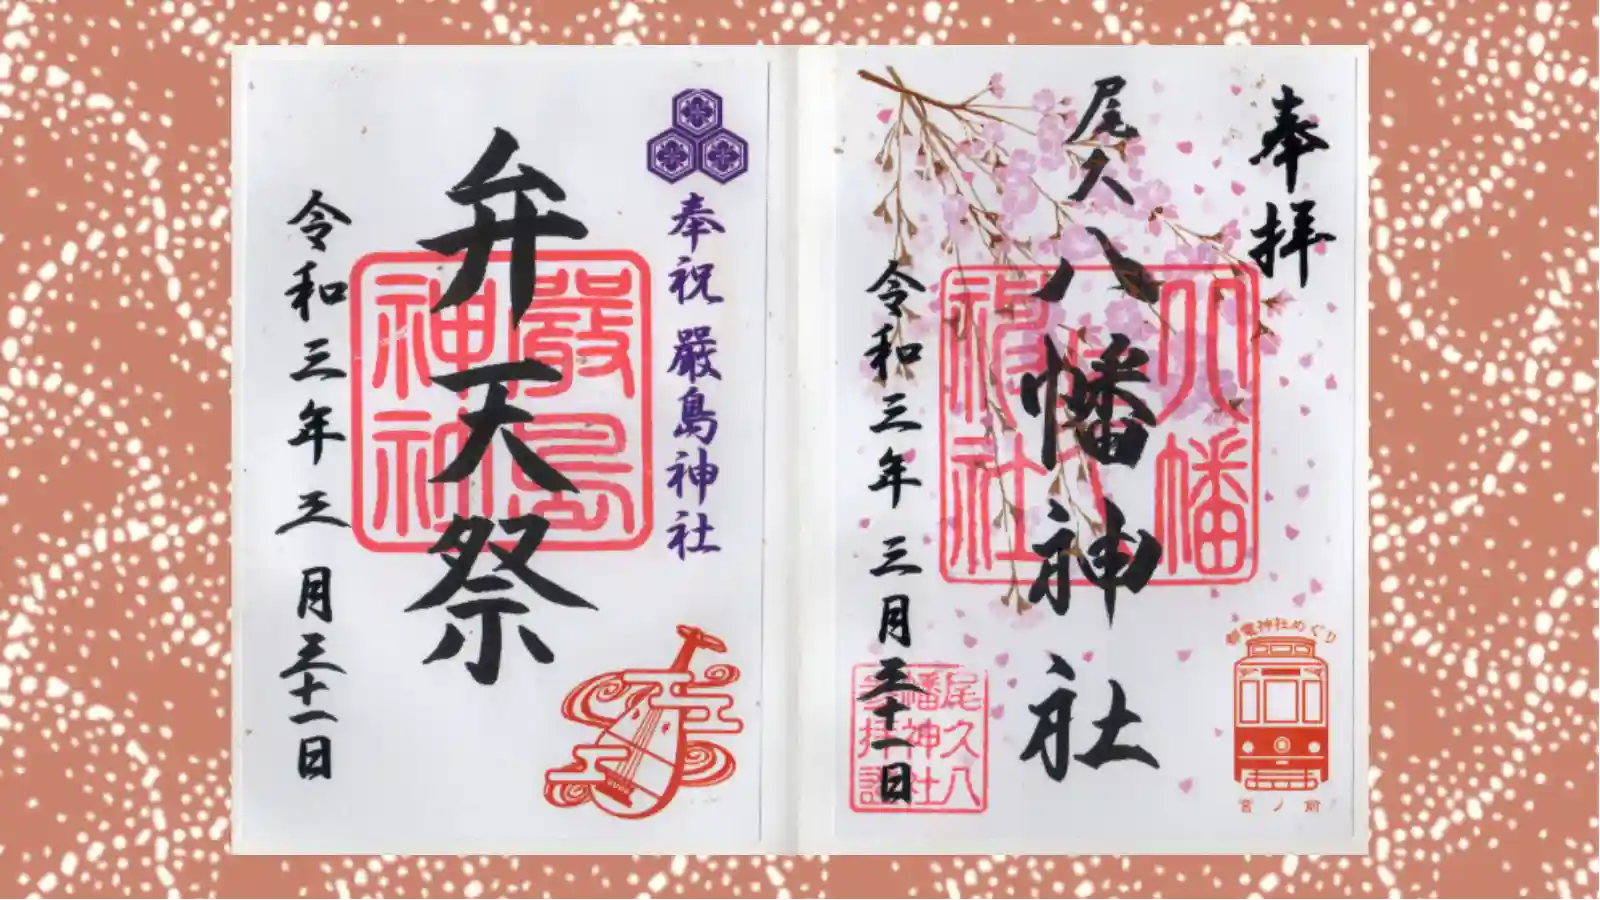 奉拝
尾久八幡神社
八幡
神社
令和三年三月三十一日
尾久八
幡神社
参拝記
都電神社めぐり
宮ノ前
奉祝 嚴島神社
弁天祭
嚴島
神社
令和三年三月三十一日